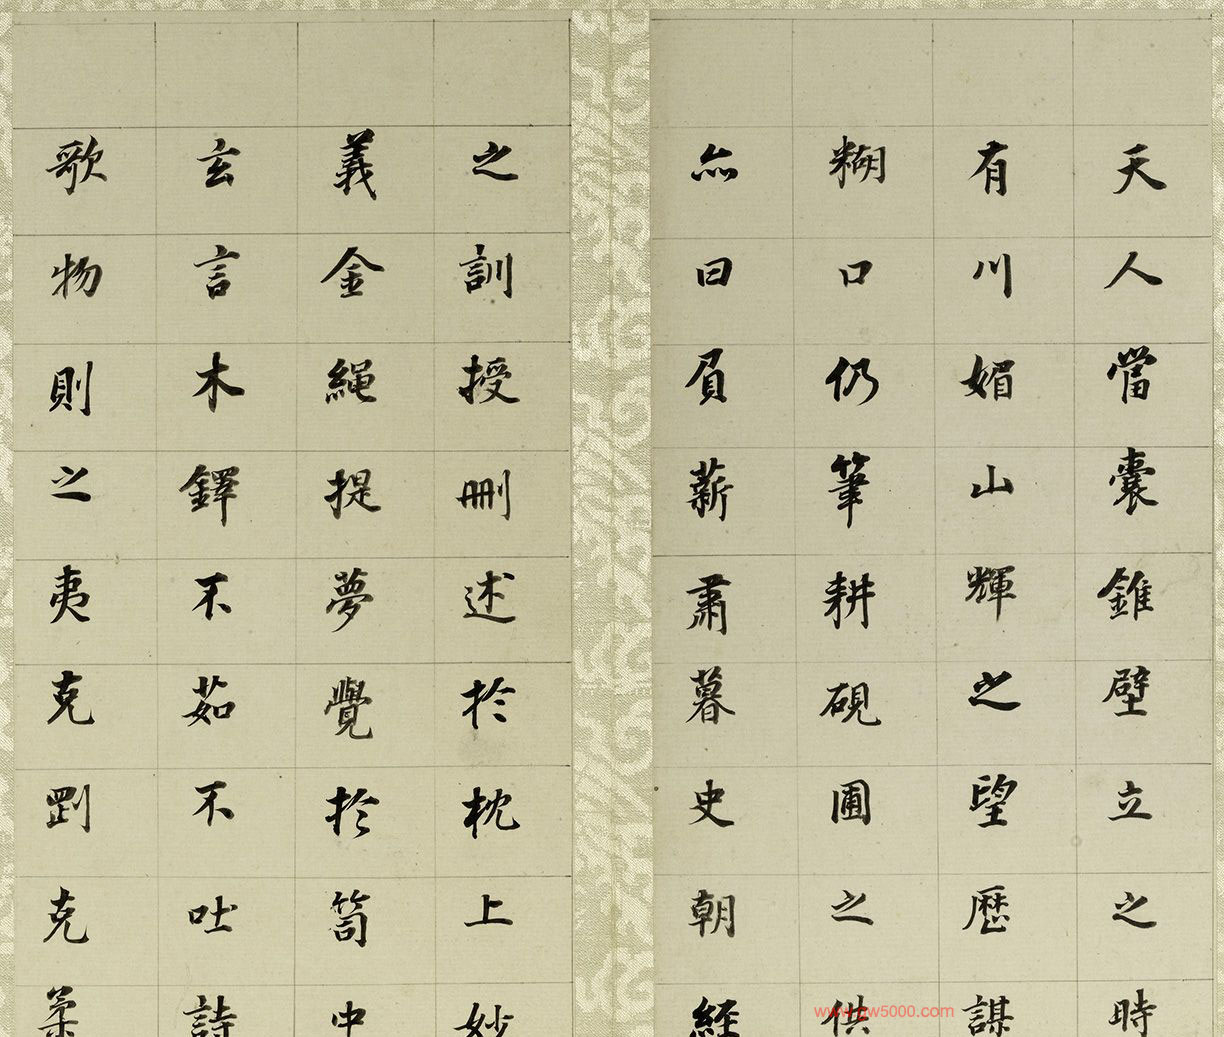 天人當囊錐壁立之時
有川媚山輝之望歷謀
糊口仍筆耕硯圃之供
亦曰負薪爾暮史朝經
之訓授刪述於枕上妙
義金繩提夢覺於笥中
玄言木鐸不茹不吐詩
歌物則之夷克剛克柔